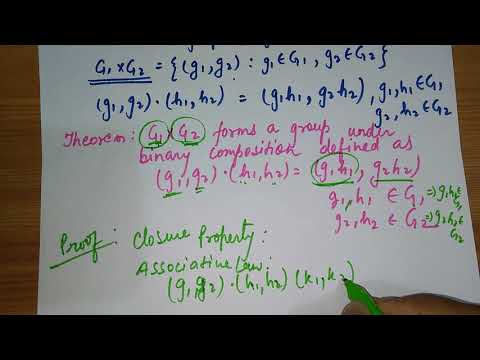 G₁×G₂ = {(g₁,g₂) : g₁∈G₁, g₂∈G₂}
(g₁,g₂)·(h₁,h₂) = (g₁h₁, g₂h₂), g₁,h₁∈G₁
g₂,h₂∈G₂
Theorem: G₁×G₂ forms a group under
binary composition defined as
(g₁,g₂)·(h₁,h₂) = (g₁h₁, g₂h₂)
g₁,h₁ ∈ G₁ ⇒ g₁h₁∈G₁
g₂,h₂ ∈ G₂ ⇒ g₂h₂∈G₂
Proof: Closure Property:
Associative Law:
(g₁,g₂)·(h₁,h₂)(k₁,k₂)